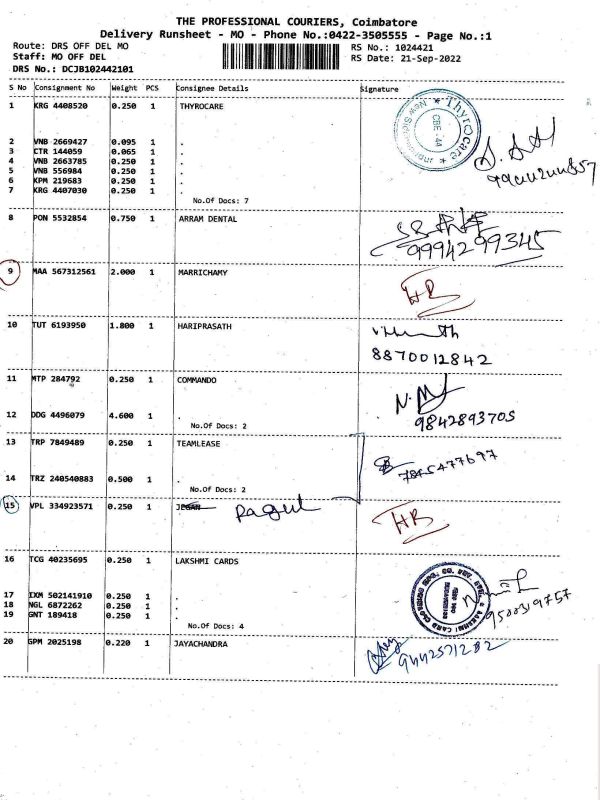 THE PROFESSIONAL COURIERS, Coimbatore
Delivery Runsheet - MO - Phone No.:0422-3505555 - Page No.:1
Route: DRS OFF DEL MO
RS No.: 1024421
Staff: MO OFF DEL
RS Date: 21-Sep-2022
DRS No.: DCJB102442101
S No Consignment No Weight PCS Consignee Details Signature
1 KRG 4408520 0.250 1 THYROCARE
Thyrocare
CBE-44
2 VNB 2669427 0.095 1 .
3 CTR 144059 0.065 1 .
4 VNB 2663785 0.250 1 .
5 VNB 556984 0.250 1 .
6 KPM 219683 0.250 1 .
7 KRG 4407030 0.250 1 .
No.Of Docs: 7
8 PON 5532854 0.750 1 ARRAM DENTAL
9994299345
9 MAA 567312561 2.000 1 MARRICHAMY
HB
10 TUT 6193950 1.800 1 HARIPRASATH
8870012842
11 MTP 284792 0.250 1 COMMANDO
9842893705
12 DDG 4496079 4.600 1 .
No.Of Docs: 2
13 TRP 7849489 0.250 1 TEAMLEASE
7845477697
14 TRZ 240540883 0.500 1 .
No.Of Docs: 2
15 VPL 334923571 0.250 1 JEGAN
HB
16 TCG 40235695 0.250 1 LAKSHMI CARDS
17 IXM 502141910 0.250 1 .
18 NGL 6872262 0.250 1 .
19 GNT 189418 0.250 1 .
9500319757
No.Of Docs: 4
20 GPM 2025198 0.220 1 JAYACHANDRA